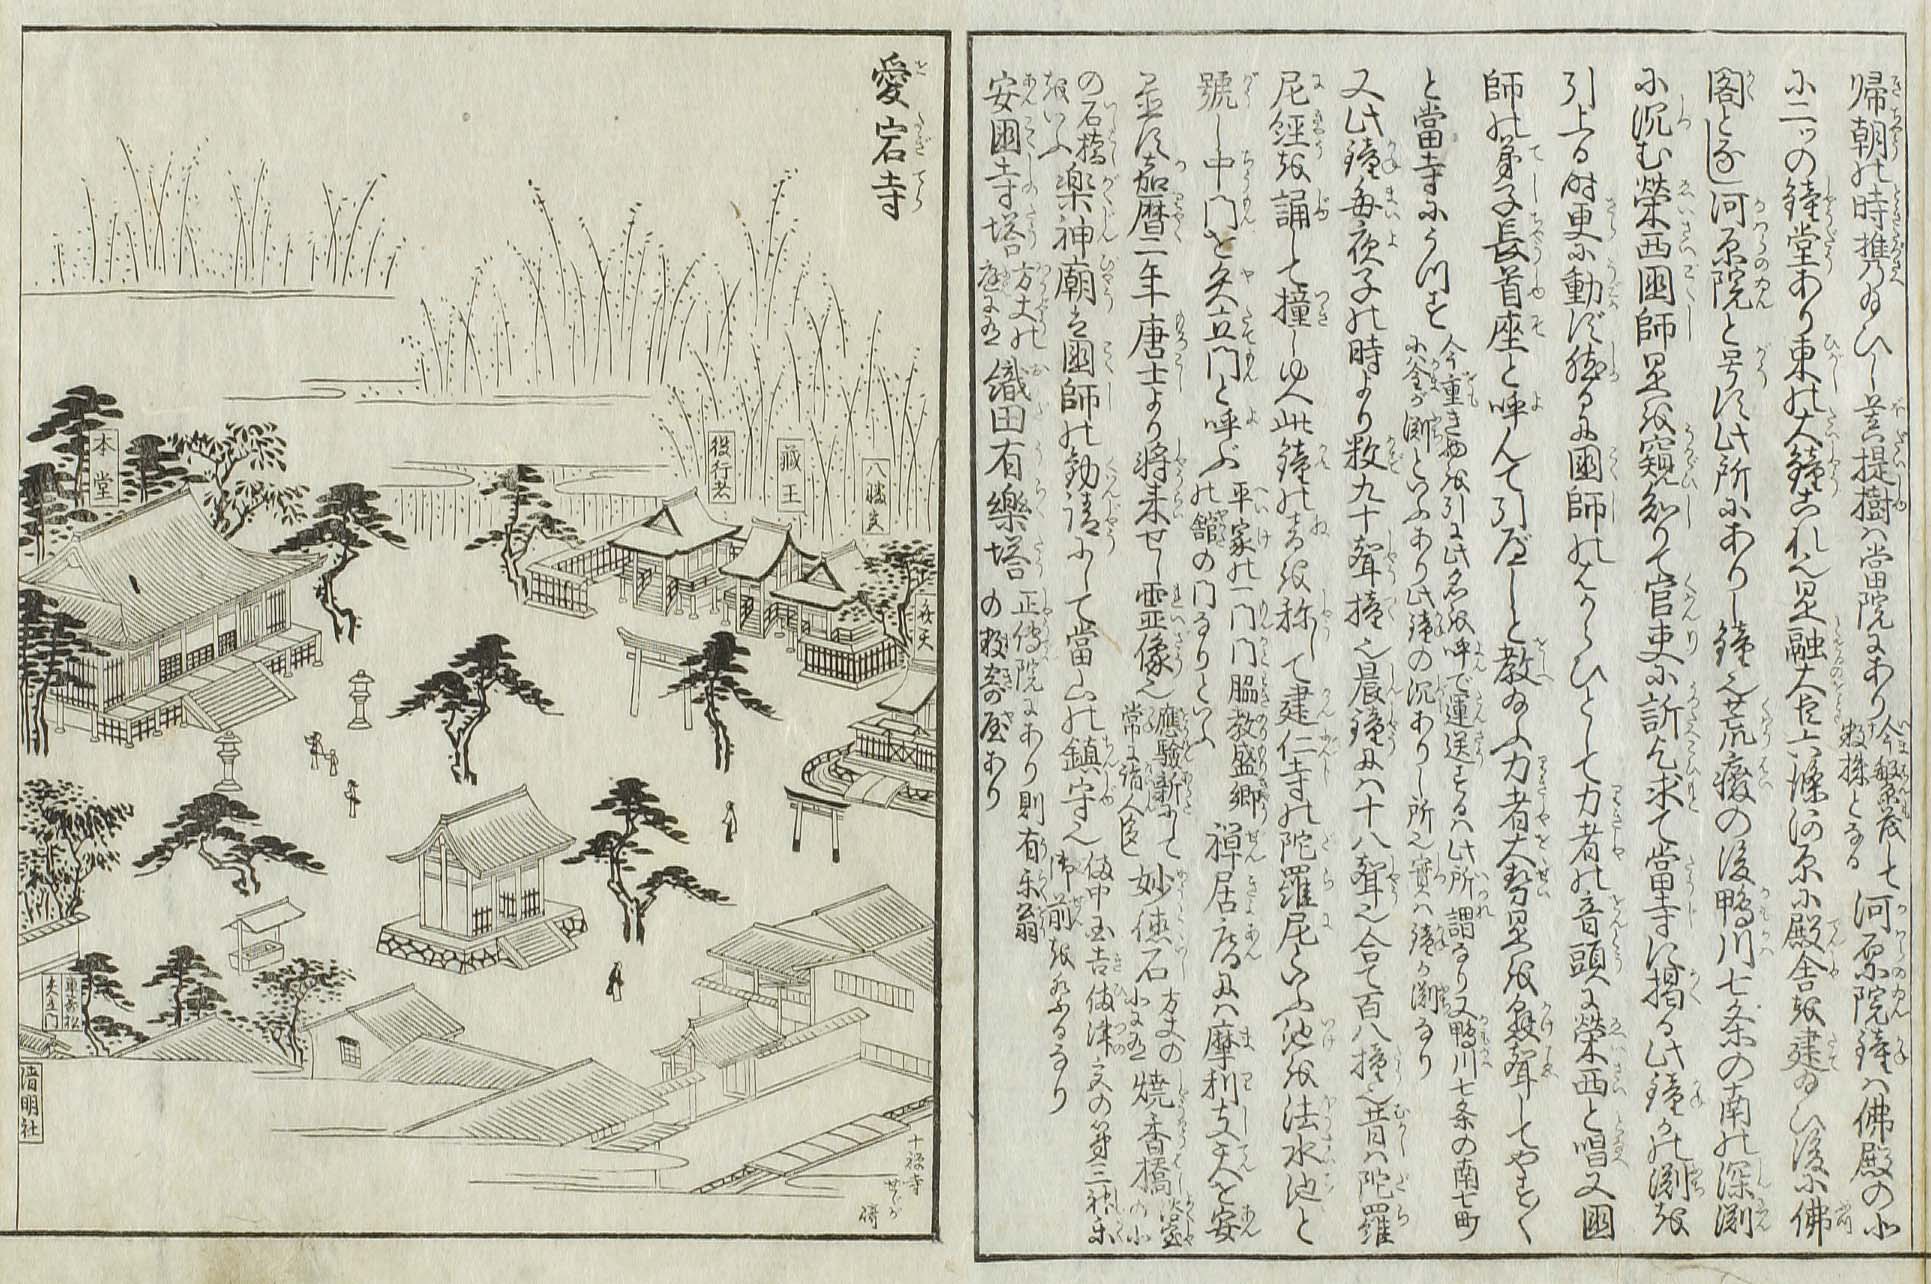 帰朝の時携給ひし菩提樹は当院にあり今繁茂して数株となる河原院鐘は佛殿の北
に二ツの鐘堂あり東の大鐘これ也是融大臣六條河原に殿舎を建給ひ後に佛
閣となし河原院と号す此所にありし鐘也荒癈の後鴨川七条の南の深渕
に沉む榮西國師是を窺知りて官吏に訴乞求て當寺に掲る此鐘かの渕を
引上る時更に動ず然るに國師のはからひとして力者の音頭に榮西と唱又國
師の弟子長首座と呼んで引べしと教給ふ力者大勢是を懸聲してやすく
と當寺にうつす今重き物を引に此名を呼で運送するは此所謂なり又鴨川七条の南七町
に釜が渕といふあり此鐘の沉ありし所也實は鐘が渕なり
又此鐘毎夜子の時より数九十聲撞也晨鐘には十八聲也合て百八撞也昔は陀羅
尼經を誦して撞しゆへ此鐘の音を称して建仁寺の陀羅尼といふ池を法水池と
號し中門を矢立門と呼ぶ平家の一門門脇教盛郷の舘の門なりといふ禅居庵には摩利支天を安
置す嘉暦二年唐土より將来せし霊像也應驗新にして常に詣人多し妙徳石方丈の北にあり焼香橋
の石橋をいふ樂神廟は國師の勧請にして當山の鎮守也備中国吉備津宮の第三神楽御前を祭るなり
安國寺塔方丈の庭にあり織田有樂塔正傳院にあり則有楽翁の数寄屋あり
愛宕寺
をたぎてら
八勝炭
蔵王
役行者
本堂
弁天
車寄松
矢立門
清明社
十禅寺